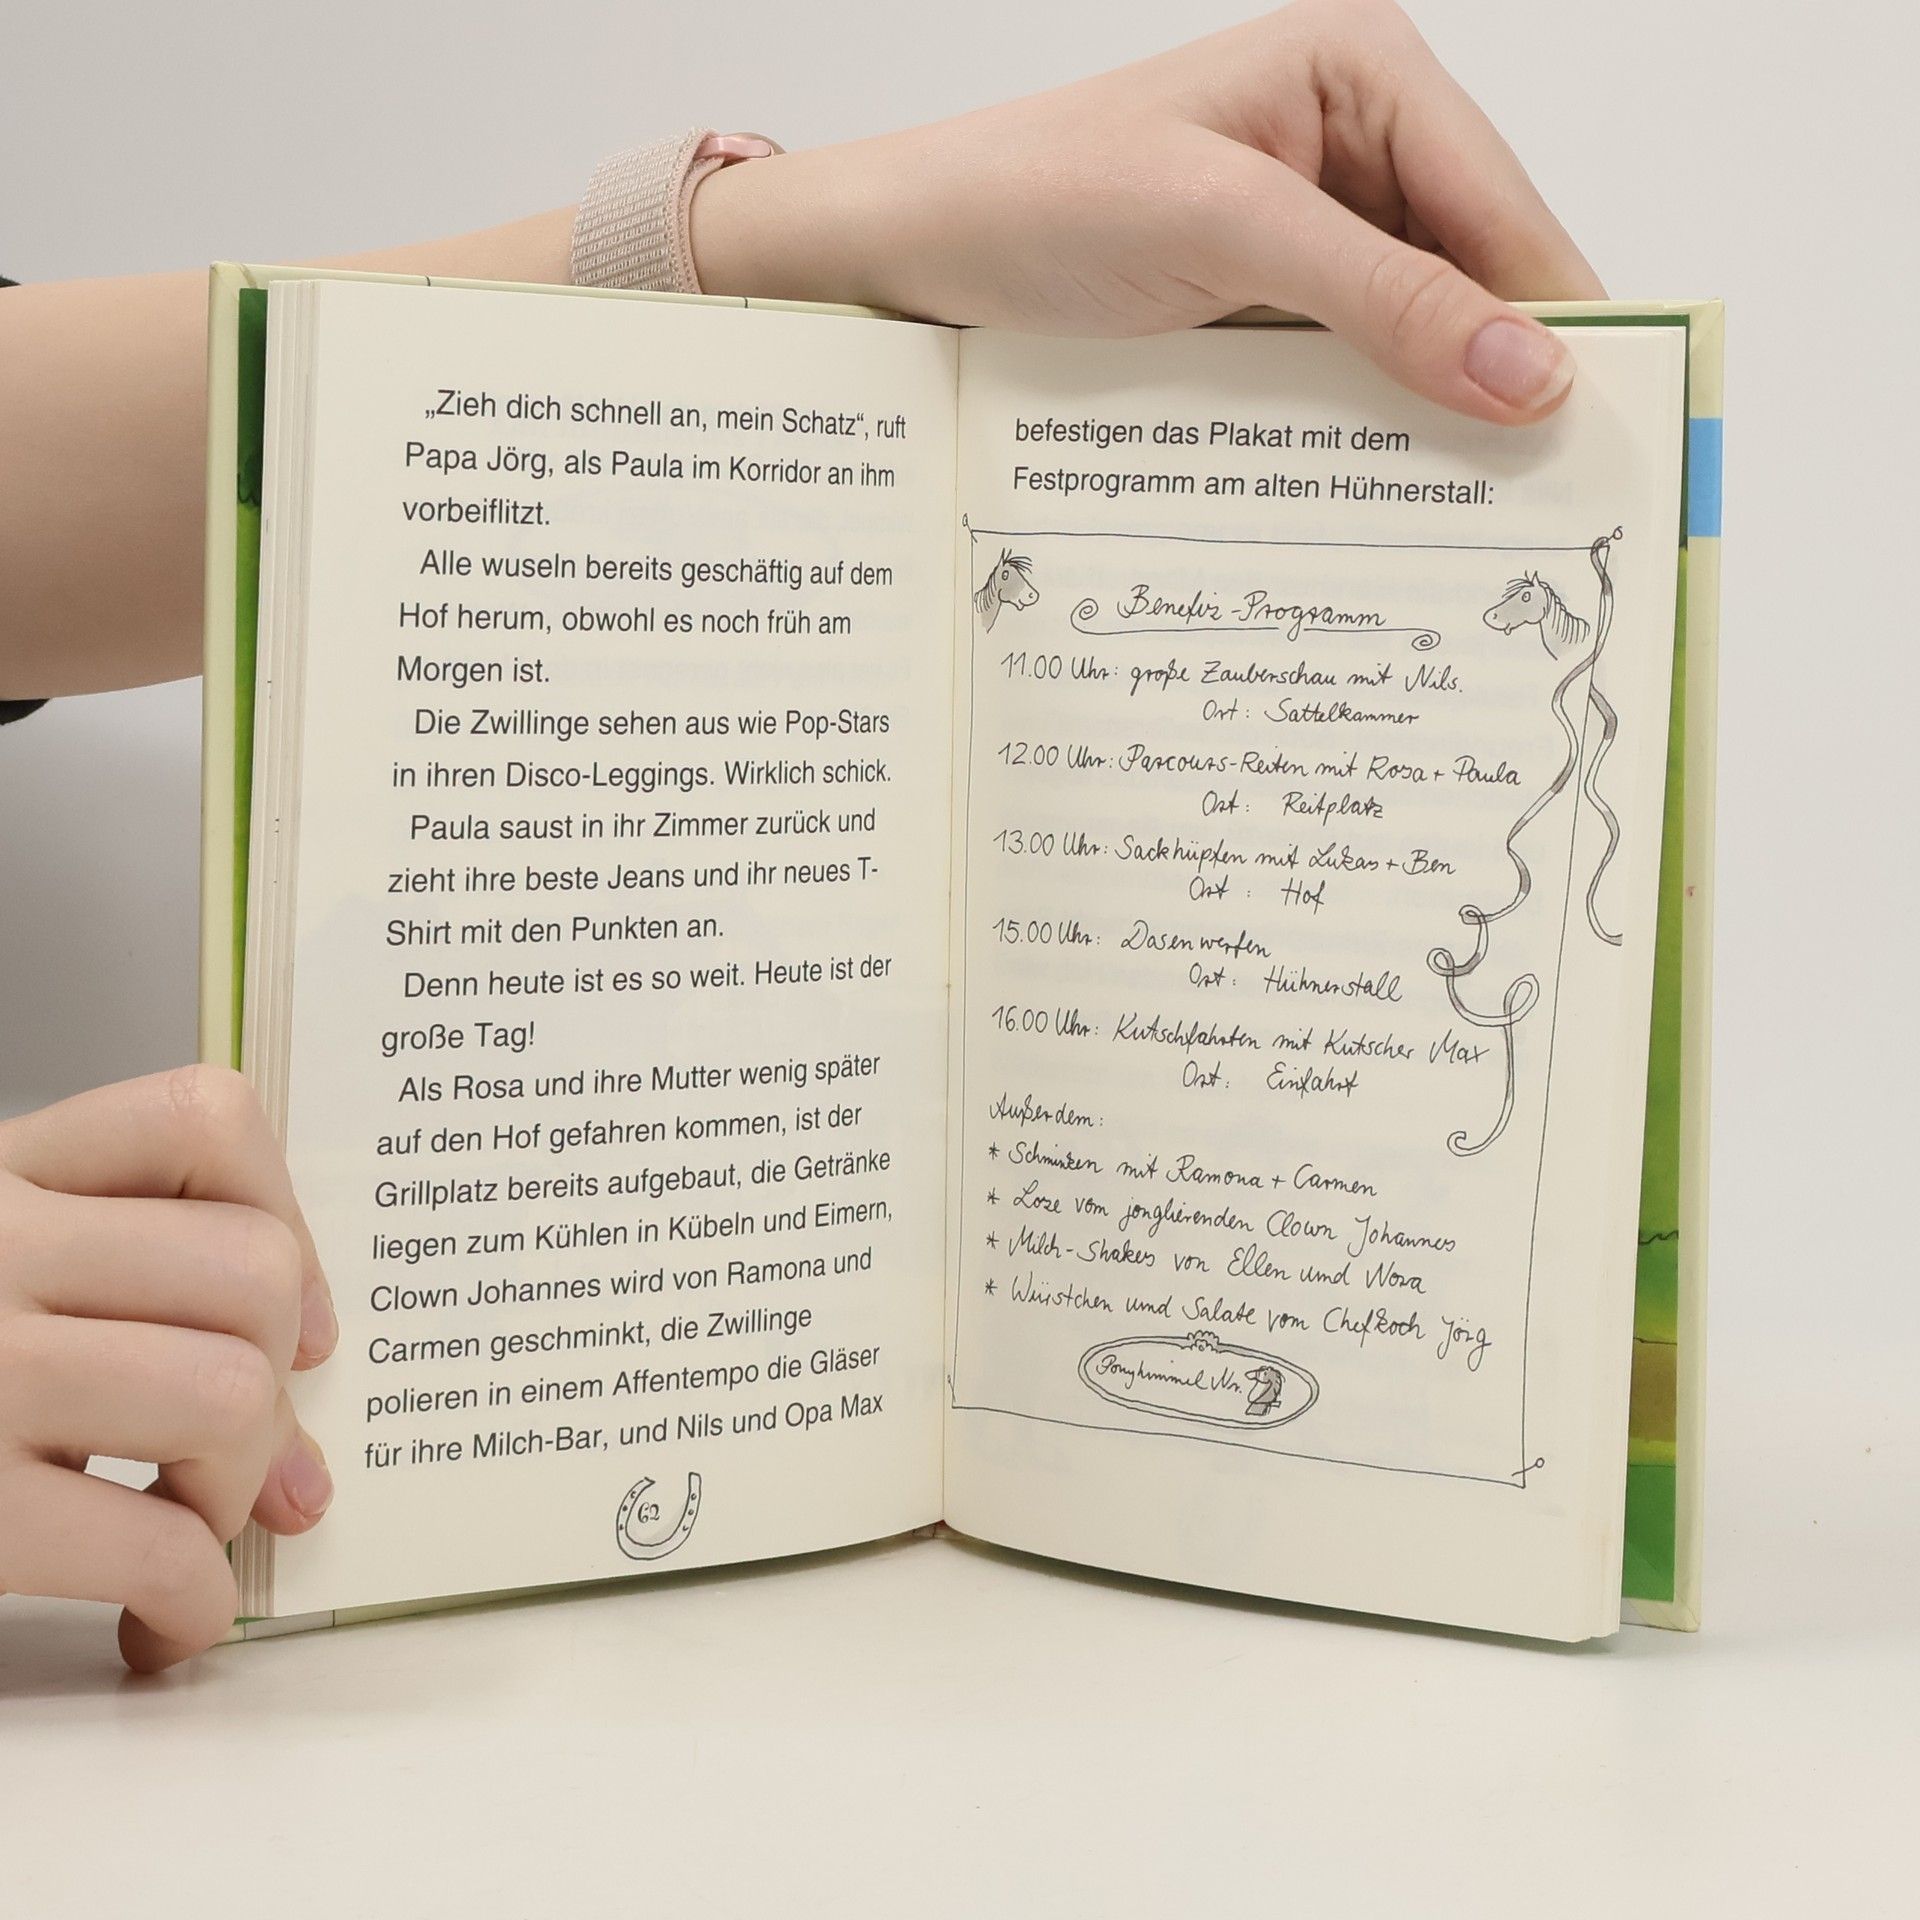 „Zieh dich schnell an, mein Schatz“, ruft
Papa Jörg, als Paula im Korridor an ihm
vorbeiflitzt.
Alle wuseln bereits geschäftig auf dem
Hof herum, obwohl es noch früh am
Morgen ist.
Die Zwillinge sehen aus wie Pop-Stars
in ihren Disco-Leggings. Wirklich schick.
Paula saust in ihr Zimmer zurück und
zieht ihre beste Jeans und ihr neues T-
Shirt mit den Punkten an.
Denn heute ist es so weit. Heute ist der
große Tag!
Als Rosa und ihre Mutter wenig später
auf den Hof gefahren kommen, ist der
Grillplatz bereits aufgebaut, die Getränke
liegen zum Kühlen in Kübeln und Eimern,
Clown Johannes wird von Ramona und
Carmen geschminkt, die Zwillinge
polieren in einem Affentempo die Gläser
für ihre Milch-Bar, und Nils und Opa Max
62
befestigen das Plakat mit dem
Festprogramm am alten Hühnerstall:
Benefiz-Programm
11.00 Uhr: große Zauberschau mit Nils.
Ort: Sattelkammer
12.00 Uhr: Parcours-Reiten mit Rosa + Paula
Ort: Reitplatz
13.00 Uhr: Sackhüpfen mit Lukas + Ben
Ort: Hof
15.00 Uhr: Dosenwerfen
Ort: Hühnerstall
16.00 Uhr: Kutschfahrten mit Kutscher Max
Ort: Einfahrt
Außerdem:
* Schminken mit Ramona + Carmen
* Lose vom jonglierenden Clown Johannes
* Milch-Shakes von Ellen und Nora
* Würstchen und Salate vom Chefkoch Jörg
Ponyhimmel Nr. 7